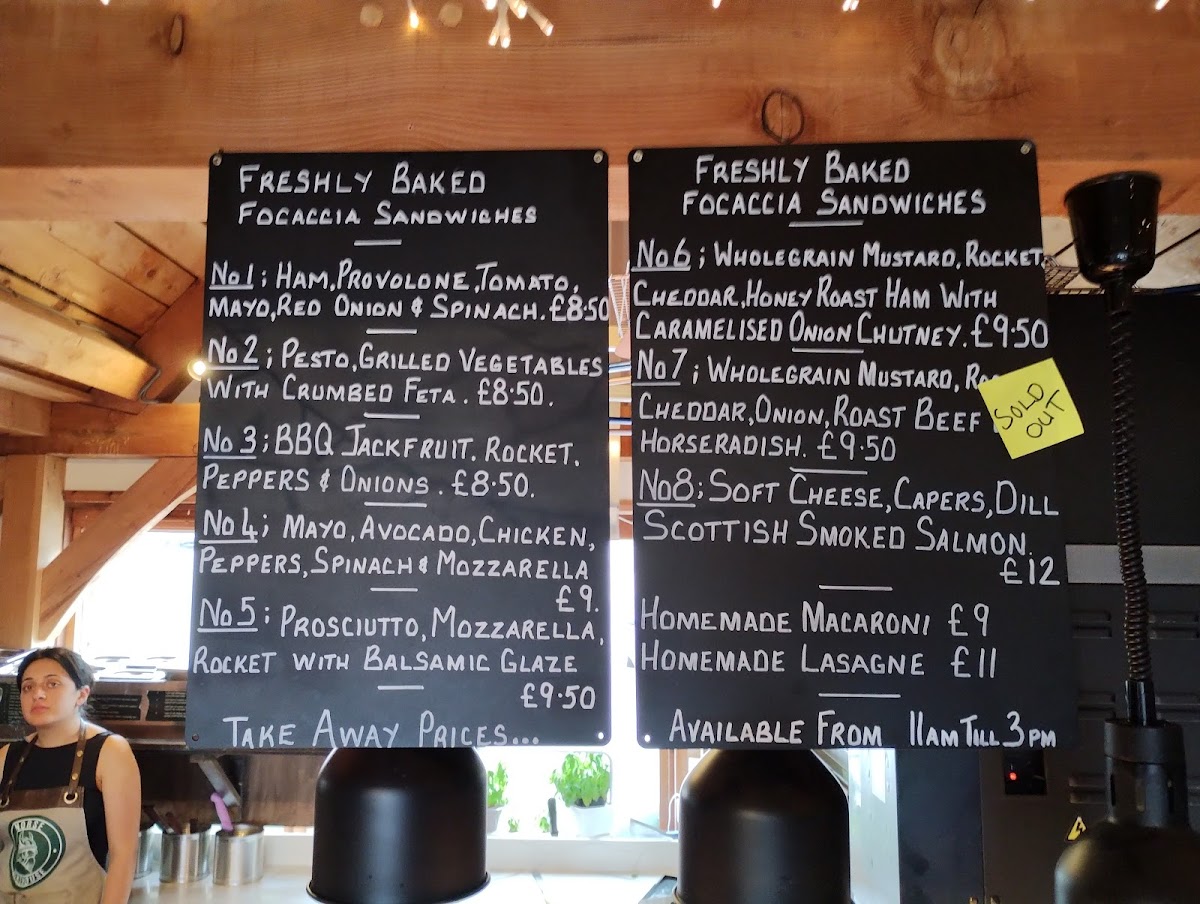 FRESHLY BAKED
FOCACCIA SANDWICHES
No1; HAM, PROVOLONE, TOMATO,
MAYO, RED ONION & SPINACH. £8.50
No2; PESTO, GRILLED VEGETABLES
WITH CRUMBED FETA. £8.50.
No3; BBQ JACKFRUIT. ROCKET.
PEPPERS & ONIONS. £8.50.
No4; MAYO, AVOCADO, CHICKEN,
PEPPERS, SPINACH & MOZZARELLA
£9.
No5; PROSCIUTTO, MOZZARELLA,
ROCKET WITH BALSAMIC GLAZE
£9.50
TAKE AWAY PRICES...
FRESHLY BAKED
FOCACCIA SANDWICHES
No6; WHOLEGRAIN MUSTARD, ROCKET,
CHEDDAR, HONEY ROAST HAM WITH
CARAMELISED ONION CHUTNEY. £9.50
No7; WHOLEGRAIN MUSTARD,
CHEDDAR, ONION, ROAST BEEF
HORSERADISH. £9.50
SOLD
OUT
No8; SOFT CHEESE, CAPERS, DILL
SCOTTISH SMOKED SALMON.
£12
HOMEMADE MACARONI £9
HOMEMADE LASAGNE £11
AVAILABLE FROM 11AM TILL 3PM